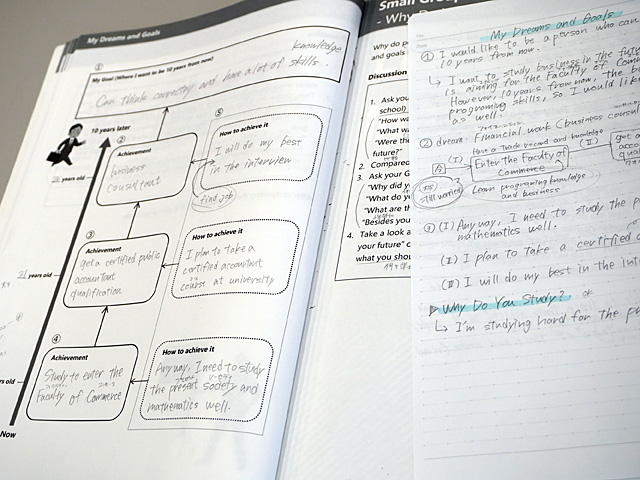 My Dreams and Goals
①
My Goal (Where I want to be 10 years from now)
knowledge
Can think correctly and have a lot of skills.
10 years later
②
Achievement
business
consultant
⑤
How to achieve it
I will do my best
in the interview
find job
years old
③
Achievement
get a certified public
accountant
qualification
How to achieve it
I plan to take a
certified accountant
course at university
years old
④
Achievement
Study to enter the
Faculty of Commerce
How to achieve it
Anyway, I need to study
the present society and
mathematics well.
ars old
Now
Small Group
- Why D
Why do p
and goals
Discussion
1. Ask you
"How wa
"What wa
"Were the
future?"
2. Compared
3. Ask your G
"Why did y
"What do yo
"What are th
"Besides you
4. Take a look a
your future" c
what you shou
My Dreams and Goals
① I would like to be a person who can
10 years from now.
↳ I want to study business in the futu
is aiming for the Faculty of Comm
However, 10 years from now, the b
programming skills, so I would like
as well.
② dream: Financial work (business consul
Have a trade record and knowledge
(I)
Enter the Faculty of
Commerce
(II)
get a
accou
quali
still worried
Learn programing knowledge
and business
③ (I) Anyway, I need to study the p
mathematics well.
(I) I plan to take a certified c
(II) I will do my best in the int
▷ Why Do You Study?
↳ I'm studying hard for the p